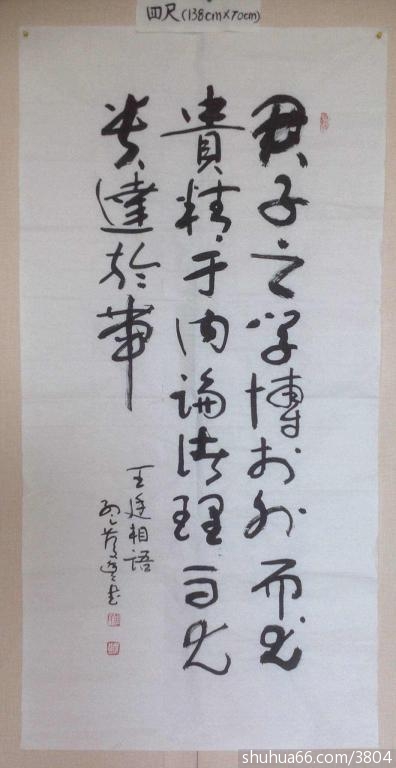 四尺(138cm×70cm)
君子之學博於外而尤
貴精于内論諸理而尤
貴達於事
王廷相語
shuhua66.com/3804